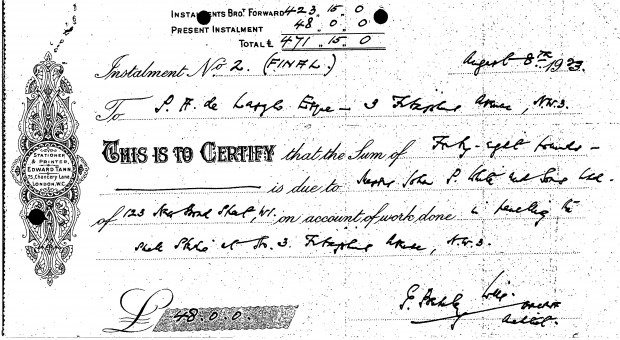 INSTALMENTS BROT FORWARD 423 . 15 . 0
PRESENT INSTALMENT 48 . 0 . 0
TOTAL £ 471 . 15 . 0
Instalment No 2. (FINAL.) August 8TH 1933.
To de Esqre – 3 Avenue, N.W.3.
STATIONER & PRINTER,
EDWARD TANN
75, Chancery Lane,
LONDON, W.C.
THIS IS TO CERTIFY that the Sum of Forty-eight pounds –
is due to Messrs John P. and Sons Ltd.
of 123 New Bond Street, W1. on account of work done in panelling the
at No. 3. Avenue, N.W.3.
£ 48 . 0 . 0 .